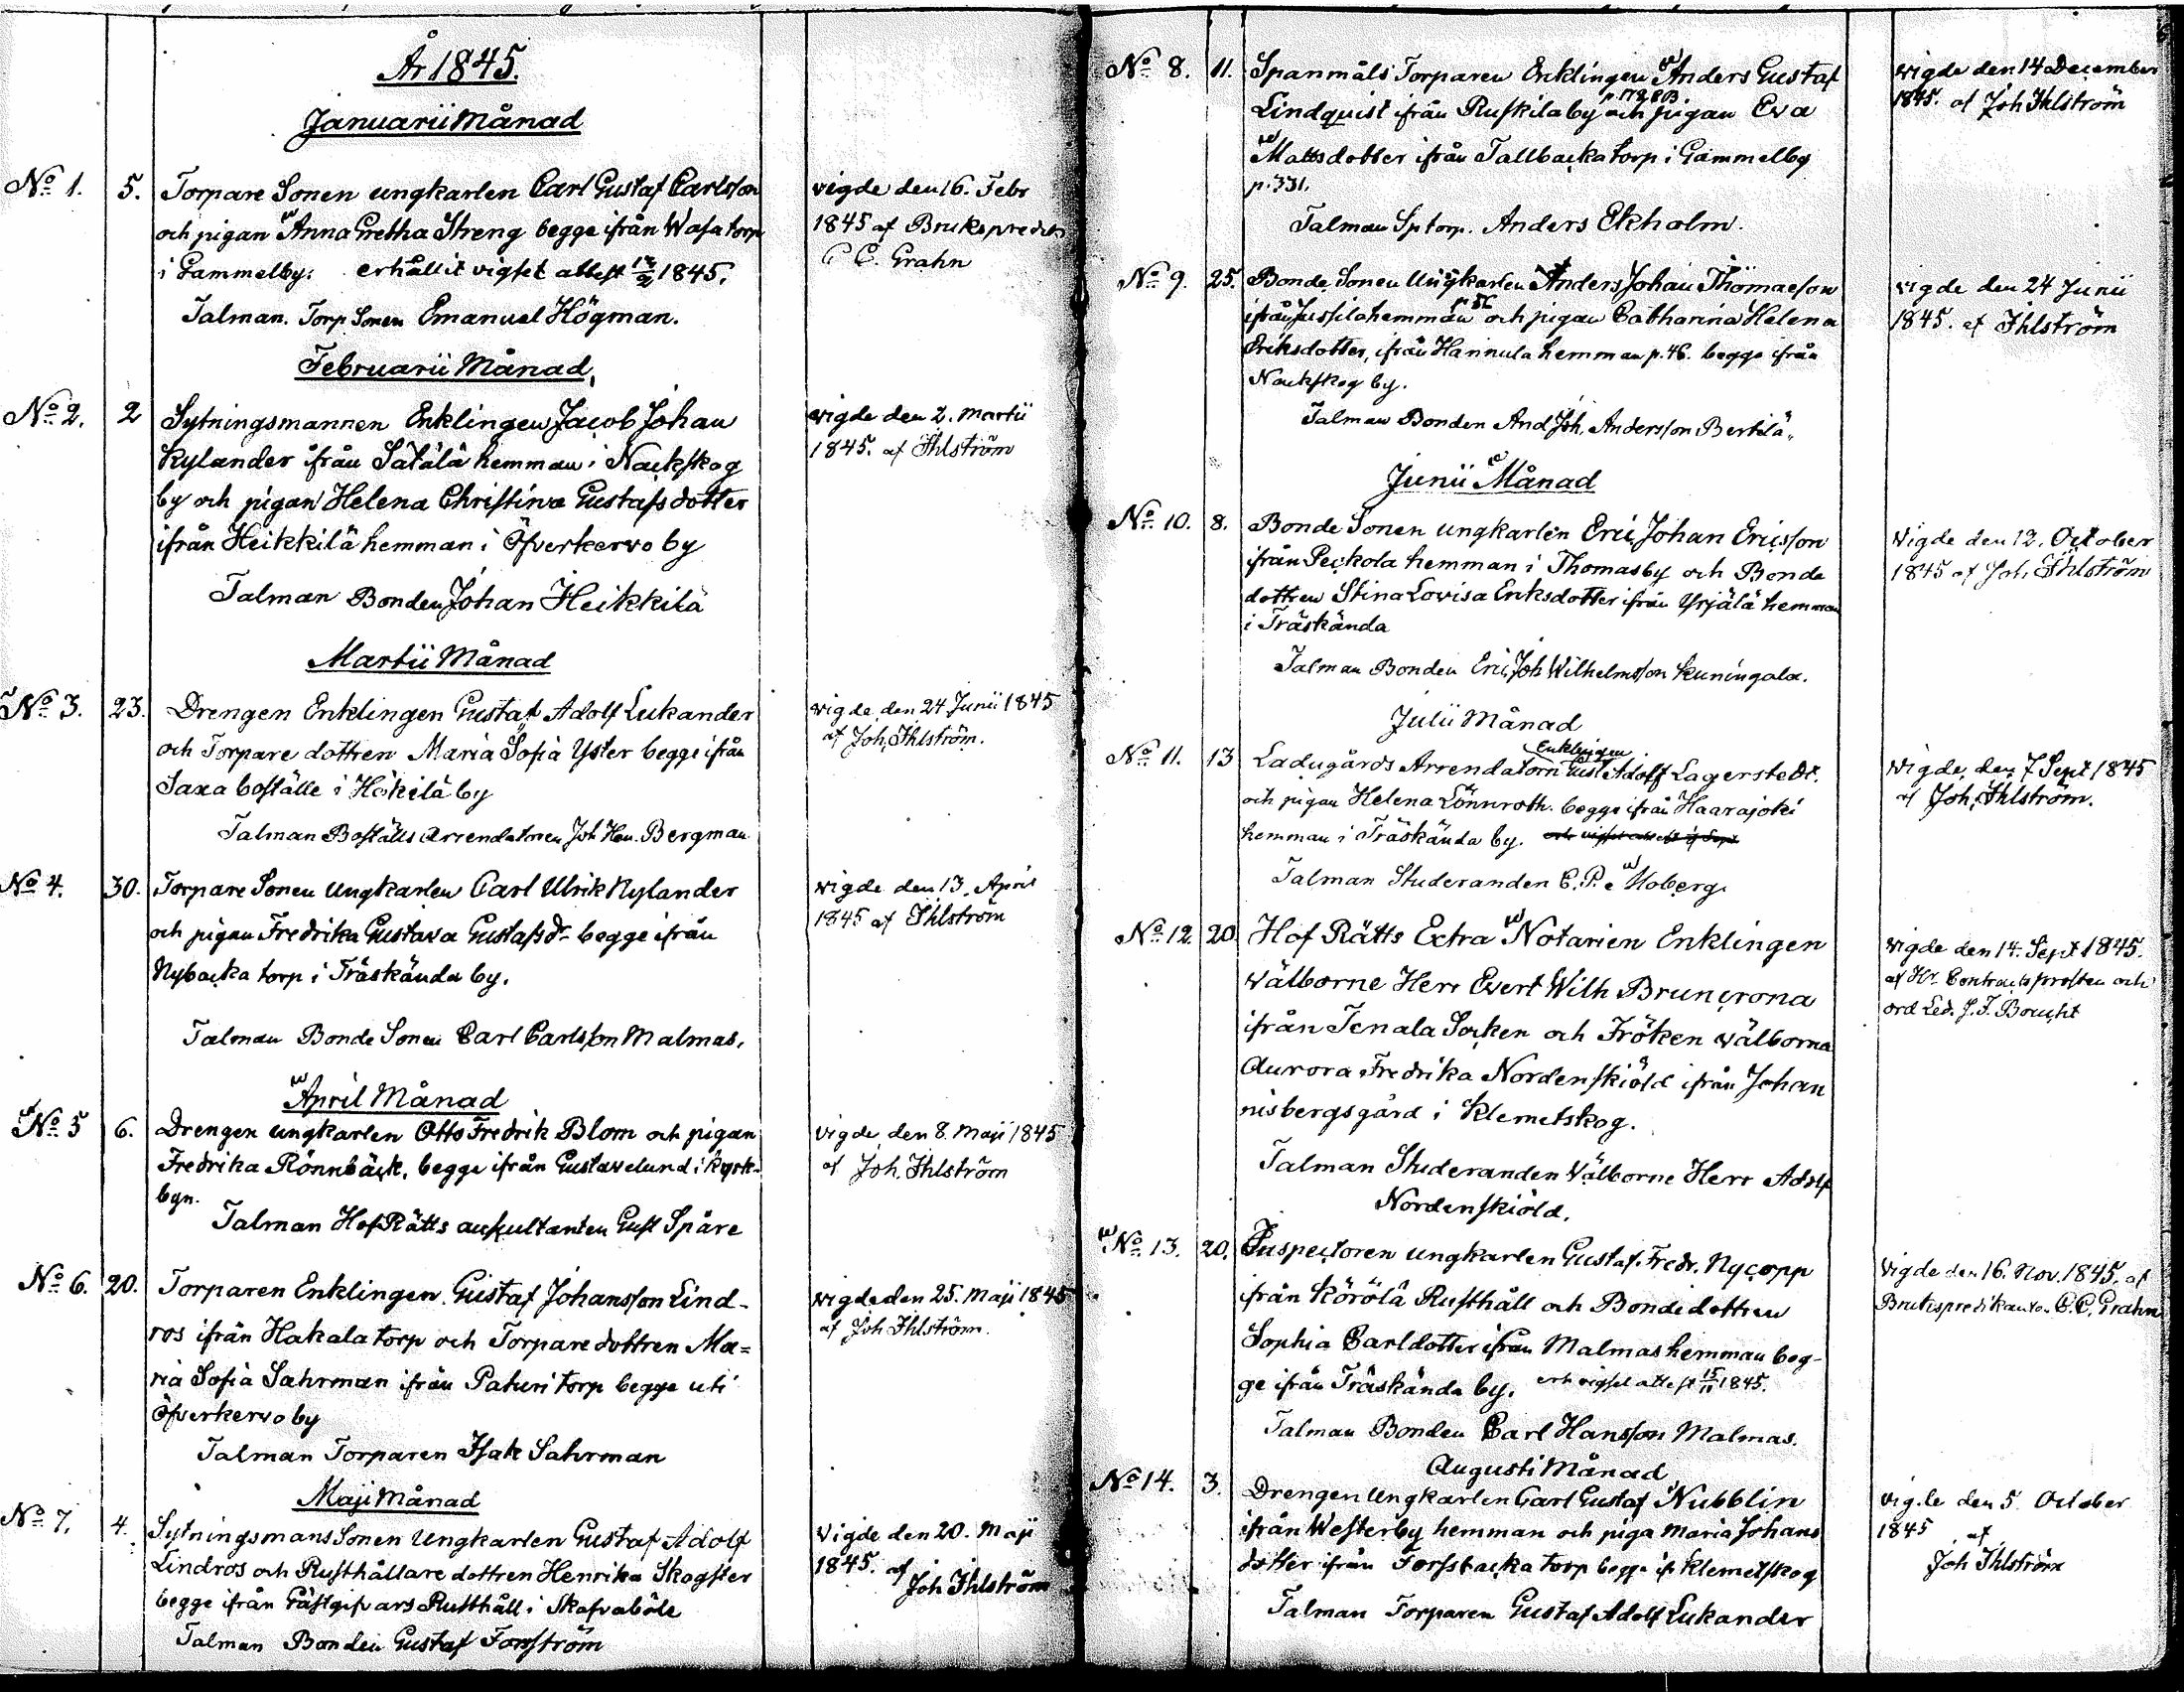 År 1845.
Januarii Månad
No 1. 5. Torpare Sonen ungkarlen Carl Gustaf Carlsson
och pigan Anna Gretha Streng begge ifrån Wasa torp
i Gammelby. erhållit vigset attest 1845.
Talman. Torp Sonen Emanuel Högman.
vigde den 16. Febr
1845 af Brukspredik
C C. Grahn
Februarii Månad,
No 2. 2 Sytningsmannen Enklingen Jacob Johan
Rylander ifrån Sätälä hemman i Nackskog
by och pigan Helena Christina Gustafsdotter
ifrån Heikkilä hemman i Öfverkervo by
Talman Bonden Johan Heikkilä
vigde den 2. Martii
1845. af Ihlström
Martii Månad
No 3. 23. Drengen Enklingen Gustaf Adolf Lukander
och Torpare dottren Maria Sofia Yster begge ifrån
Saxa boställe i Hökilä by
Talman Boställs Arrendatoren Joh Hen. Bergman
vigde den 24 Junii 1845
af Joh. Ihlström.
No 4. 30. Torpare Sonen Ungkarlen Carl Ulrik Nylander
och pigan Fredrika Gustava Gustafsdr begge ifrån
Nybacka torp i Träskända by.
Talman Bonde Sonen Carl Carlsson Malmas.
vigde den 13. April
1845 af Ihlström
April Månad
No 5 6. Drengen ungkarlen Otto Fredrik Blom och pigan
Fredrika Rönnbäck, begge ifrån Gustavelund i kyrk-
byn.
Talman HofRätts auskultanten Gust Spåre
vigde den 8. Maji 1845
af Joh. Ihlström
No 6. 20. Torparen Enklingen Gustaf Johansson Lind-
ros ifrån Hakala torp och Torpare dottren Ma=
ria Sofia Sahrman ifrån Paturi torp begge uti
Öfverkervo by
Talman Torparen Isak Sahrman
vigde den 25. Maji 1845
af Joh Ihlström.
Maji Månad
No 7. 4. Sytningsmans Sonen Ungkarlen Gustaf Adolf
Lindros och Rusthållare dottren Henrika Skogster
begge ifrån Gästgifvars Rusthåll i Skafvaböle
Talman Bonden Gustaf Forsström
Vigde den 20. Maji
1845. af
Joh Ihlström
No 8. 11. Spanmåls Torparen Enklingen Anders Gustaf
Lindquist ifrån Ruskilaby och pigan Eva
Mattsdotter ifrån Tallbacka torp i Gammelby
p. 331.
Talman Sptorp. Anders Ekholm.
vigde den 14 December
1845. af Joh Ihlström
No 9. 25. Bonde Sonen Ungkarlen Anders Johan Thomasson
ifrån Jussila hemman och pigan Catharina Helena
Eriksdotter, ifrån Hannula hemman p. 46. begge ifrån
Nackskog by.
Talman Bonden And Joh. Andersson Bertilä.
vigde den 24 Junii
1845. af Ihlström
Junii Månad
No 10. 8. Bonde Sonen ungkarlen Eric Johan Ericsson
ifrån Peckola hemman i Thomasby och Bonde
dottren Stina Lovisa Eriksdotter ifrån Yrjälä hemman
i Träskända
Talman Bonden Eric Joh Wilhelmsson Kuningala.
Vigde den 12. October
1845 af Joh Ihlström
Julii Månad
No 11. 13 Ladugårds Arrendatorn Enklingen Gust Adolf Lagerstedt.
och pigan Helena Lönnroth. begge ifrån Haarajoki
hemman i Träskända by.
Talman Studeranden C. P. Moberg.
Vigde den 7 Sept 1845
af Joh. Ihlström.
No 12 20 Hof Rätts Extra Notarien Enklingen
Wälborne Herr Evert Wilh Bruncrona
ifrån Tenala Socken och Fröken wälborna
Aurora Fredrika Nordenskiöld ifrån Johan
nisbergsgård i Klemetskog.
Talman Studeranden Wälborne Herr Adolf
Nordenskiöld.
Vigde den 14. Sept 1845.
af Hr Contractsprosten och
ord Led. J. F. Boucht
No 13. 20. Inspectoren ungkarlen Gustaf. Fredr. Nycopp
ifrån Körölä Rusthåll och Bonde dottren
Sophia Carldotter ifrån Malmas hemman beg-
ge ifrån Träskända by. erh vigsel attest 15/11 1845.
Talman Bonden Carl Hansson Malmas.
Vigde den 16. Nov. 1845. af
Brukspredikanten C. C. Grahn
Augusti Månad
No 14. 3. Drengen Ungkarlen Carl Gustaf Nubblin
ifrån Westerby hemman och piga Maria Johans
dotter ifrån Forssbacka torp begge if. Klemetskog
Talman Torparen Gustaf Adolf Lukander
Vigde den 5. October
1845 af
Joh Ihlström